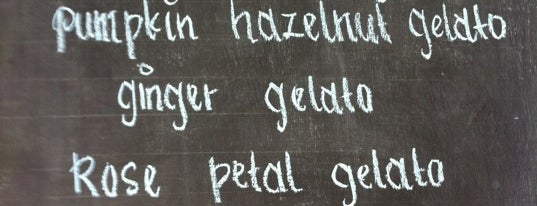 pumpkin hazelnut gelato
ginger gelato
Rose petal gelato